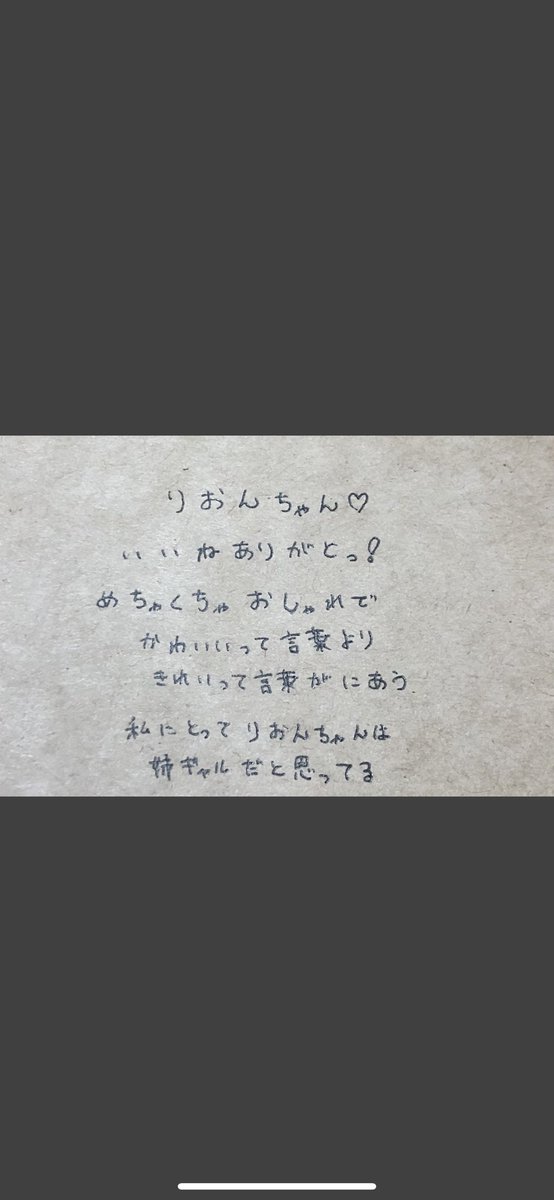 りおんちゃん♡
いいねありがとっ!
めちゃくちゃおしゃれで
かわいいって言葉より
きれいって言葉がにあう
私にとってりおんちゃんは
姉ギャルだと思ってる